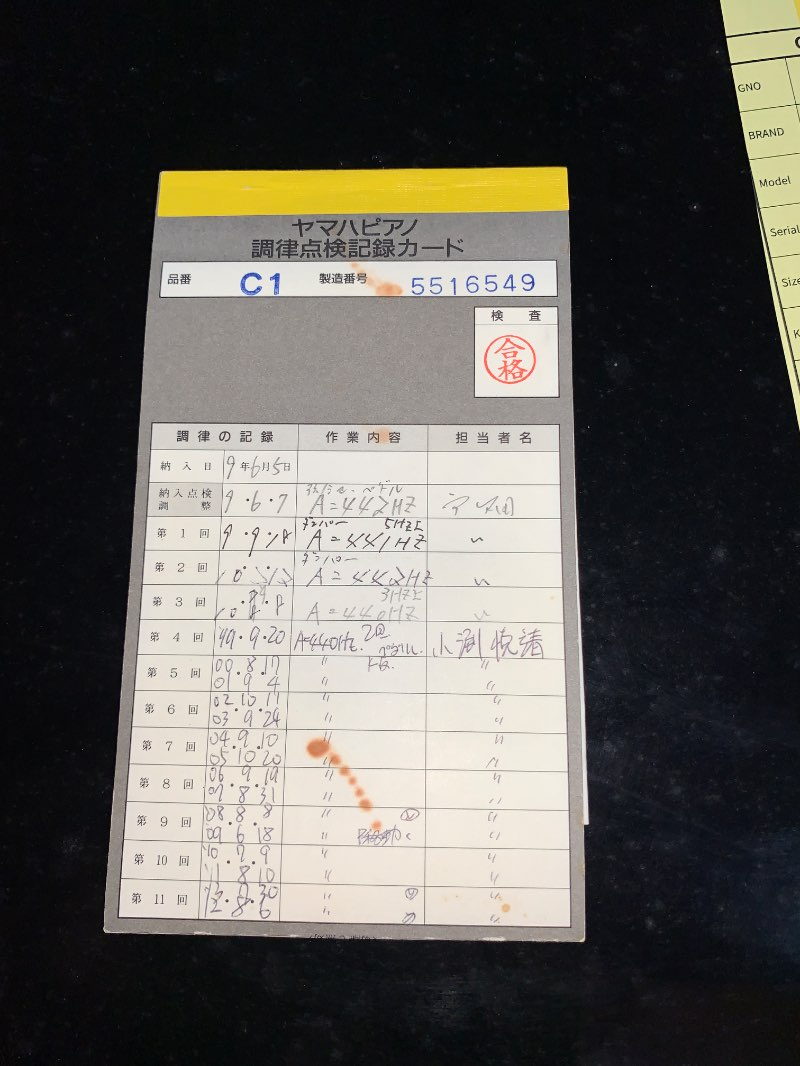 ヤマハピアノ
調律点検記録カード
品番 C1 製造番号 5516549
検査
合格
調律の記録 作業内容 担当者名
納入日 9年6月5日
納入点検調整 9・6・7 ペダル A=442HZ
第1回 9・9・18 ダンパー 5HZ A=441HZ 〃
第2回 ダンパー A=442HZ 〃
第3回 3HZ A=440HZ 〃
第4回 99・9・20 A=440Hz. 2回 小渕悦靖
第5回 00・8・17 〃 〃
01 9 4 〃
第6回 02 10 17 〃 〃
03・9・24 〃 〃
第7回 04・9・10 〃 〃
05 10 20 〃 〃
第8回 06 9 19 〃 〃
07 8 31 〃 〃
第9回 '08 8 8 〃 〃
'09 6 18 〃 〃
第10回 '10・7・9 〃 〃
'11 8 10 〃 〃
第11回 30 〃 〃
12・8・6 〃 〃
GNO
BRAND
Model
Serial
Size